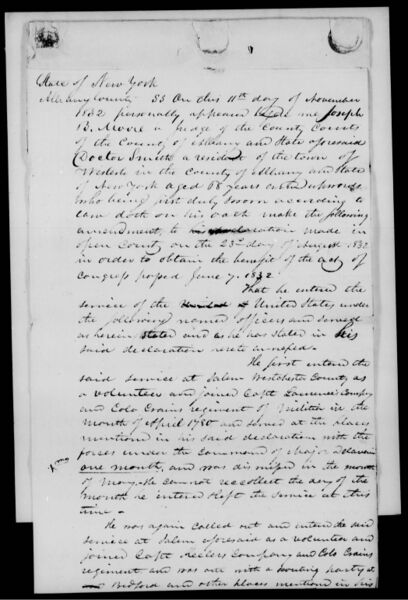 State of New York
Albany County SS On this 11th day of November
1832 personally appeared before me Joseph
B. Moore a judge of the County Courts
of the County of Albany and State aforesaid
Doctor Smith a resident of the town of
Westerlo in the County of Albany and State
of New York aged 68 years
who being first duly sworn according to
law doth on his oath make the following
amendment, to his declaration made in
open County on the 23d day of August 1832
in order to obtain the benefit of the act of
congress passed June 7. 1832
That he entered the
service of the United States under
the following named officers and served
as herein stated and as he has stated in his
said declaration
He first entered the
said service at Salem Westchester County as
a volunteer and joined Capt Lawrence Company
and Colo Crains regiment of Militia in the
month of April 1780 and served at the places
mentioned in his said declaration with the
forces under the Command of Major Delavan
one month, and was dismissed in the month
of May. He cannot recollect the day of the
month he entered & left the service at this
time.
He was again called out and entered the said
service at Salem aforesaid as a volunteer and
joined Capt Company and Colo Crains
regiment and was out with a scouting party at
Bedford and other places mentioned in his